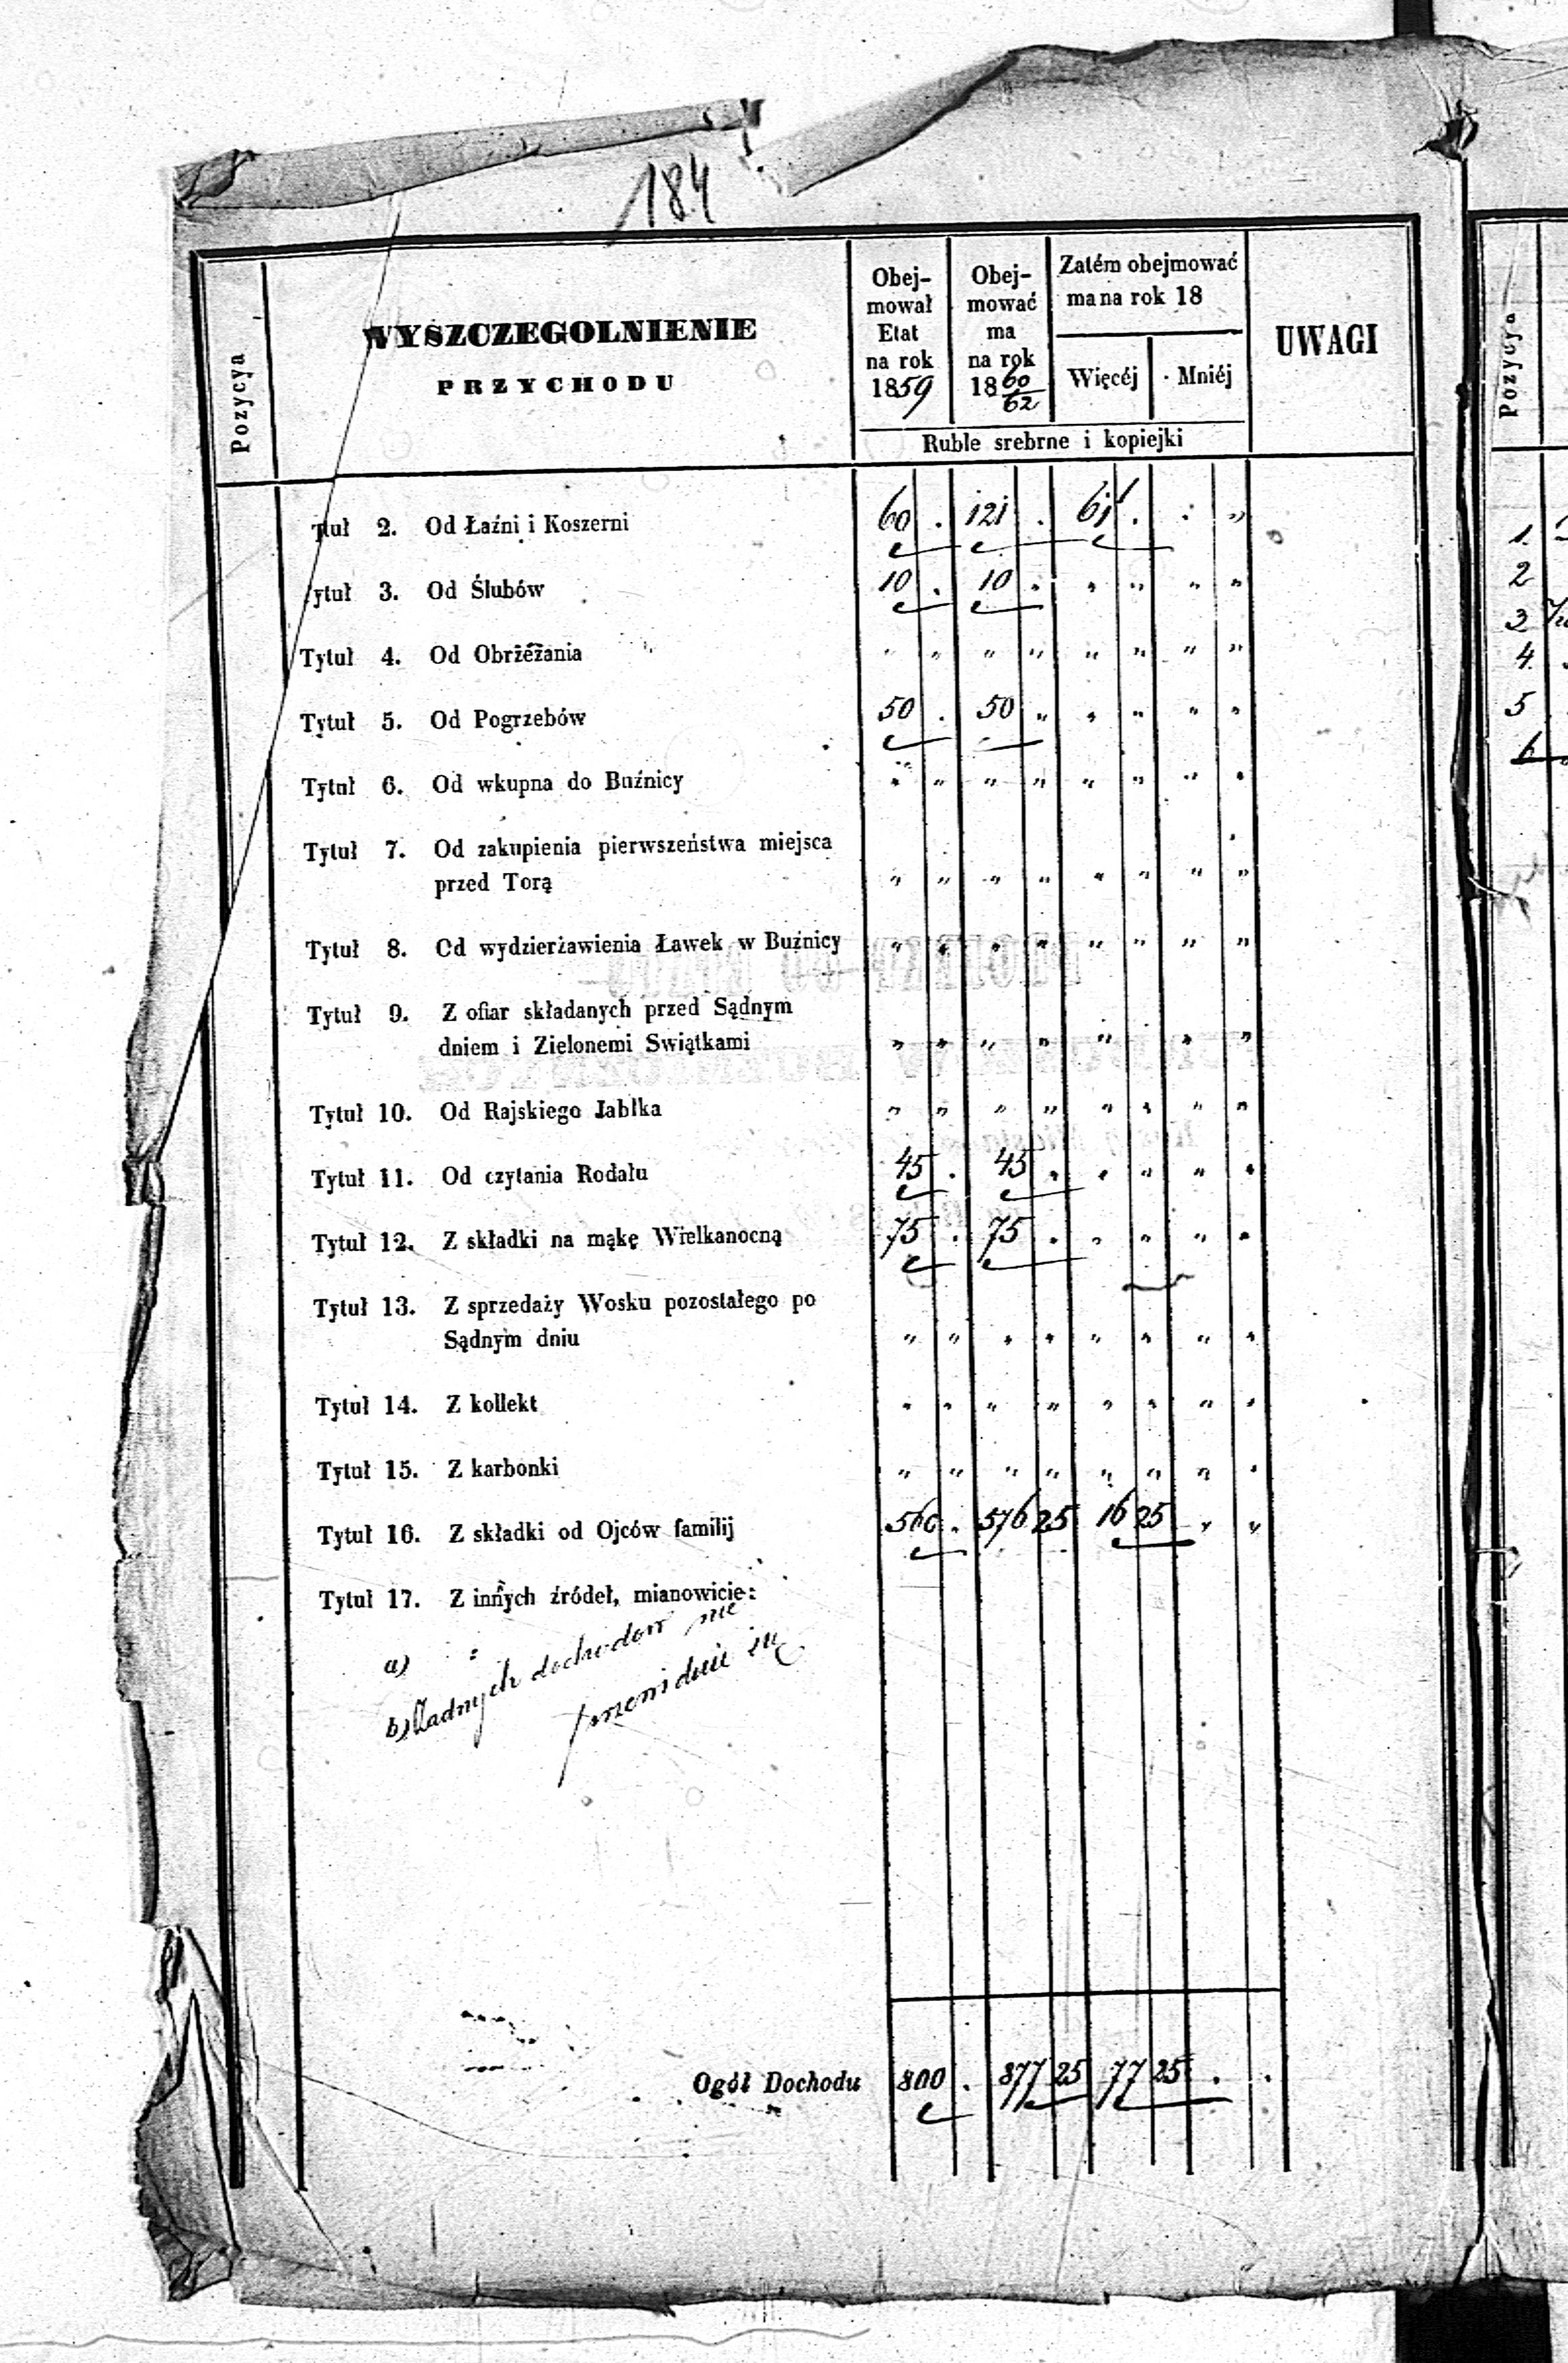 184
Pozycya
WYSZCZEGOLNIENIE
PRZYCHODU
Obej-
mował
Etat
na rok
1859
Obej-
mować
ma
na rok
18 60/62
Zatém obejmować
ma na rok 18
Więcéj Mniéj
UWAGI
Ruble srebrne i kopiejki
tuł 2. Od Łaźni i Koszerni 60 . 121 . 61 . . „
ytuł 3. Od Ślubów 10 . 10 „ „ „ „ „
Tytuł 4. Od Obrzézania „ „ „ „ „ „ „ „
Tytuł 5. Od Pogrzebów 50 . 50 „ „ „ „ „
Tytuł 6. Od wkupna do Buźnicy „ „ „ „ „ „ „ „
Tytuł 7. Od zakupienia pierwszeństwa miejsca
przed Torą „ „ „ „ „ „ „ „
Tytuł 8. Od wydzierżawienia Ławek w Buźnicy „ „ „ „ „ „ „ „
Tytuł 9. Z ofiar składanych przed Sądnym
dniem i Zielonemi Swiątkami „ „ „ „ „ „ „
Tytuł 10. Od Rajskiego Jabłka „ „ „ „ „ „ „ „
Tytuł 11. Od czytania Rodału 45 . 45 . „ „ „ „
Tytuł 12. Z składki na mąkę Wielkanocną 75 . 75 . „ „ „ „
Tytuł 13. Z sprzedaży Wosku pozostałego po
Sądnym dniu „ „ „ „ „ „ „ „
Tytuł 14. Z kollekt „ „ „ „ „ „ „ „
Tytuł 15. Z karbonki „ „ „ „ „ „ „ „
Tytuł 16. Z składki od Ojców familij 560 . 576 25 16 25 „ „
Tytuł 17. Z innych źródeł, mianowicie:
a)
b) Żadnych dochodow nie
Ogół Dochodu 800 . 877 25 77 25 . .
Pozycya
1.
2
3
4.
5
6